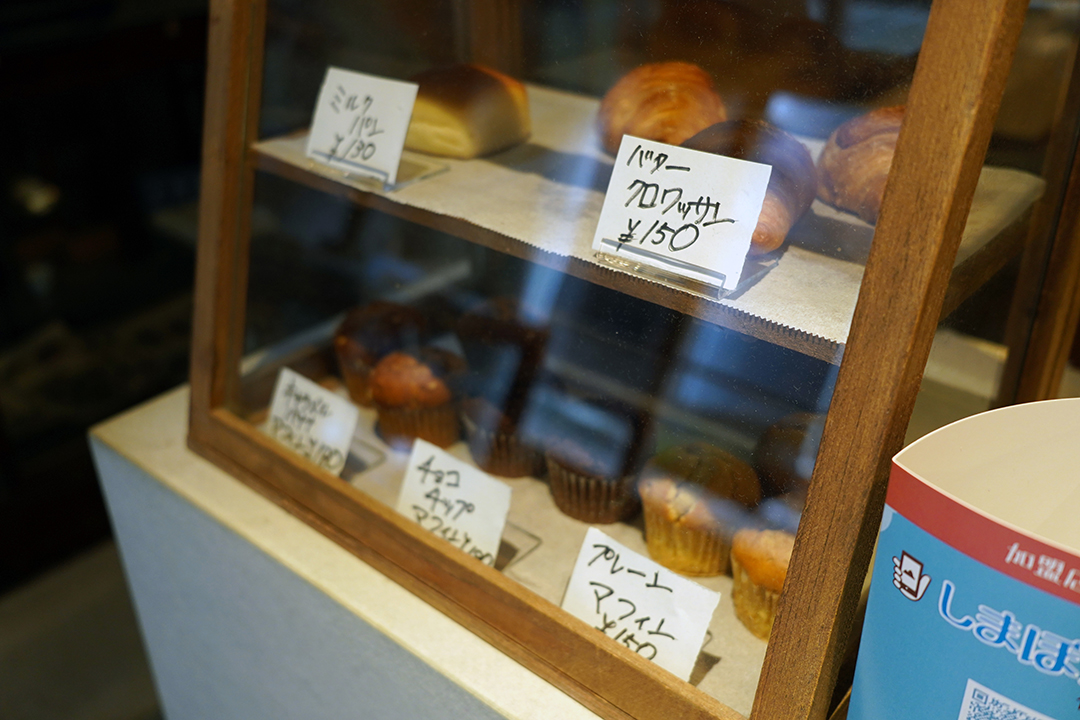 ミルク
パン
¥130
バター
クロワッサン
¥150
マフィン
チョコ
チップ
マフィン
プレーン
マフィン
¥150
加盟店
しまぽ